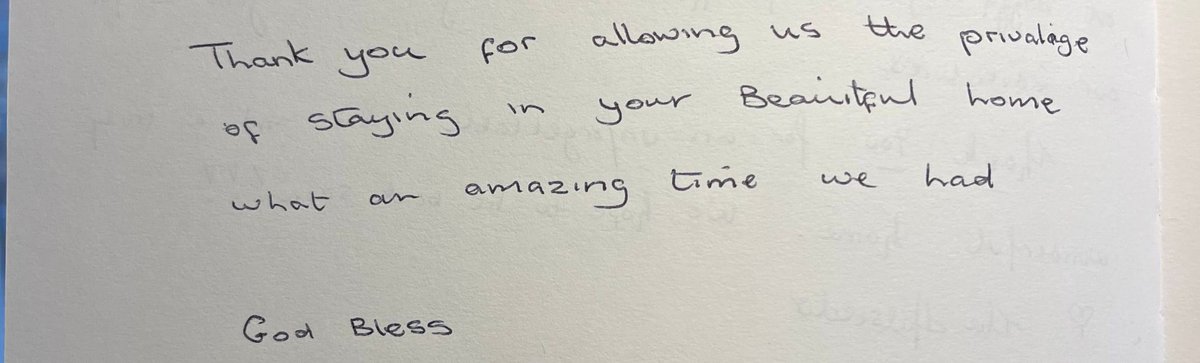 Thank you for allowing us the privalige
of staying in your Beauitful home
what an amazing time we had
God Bless